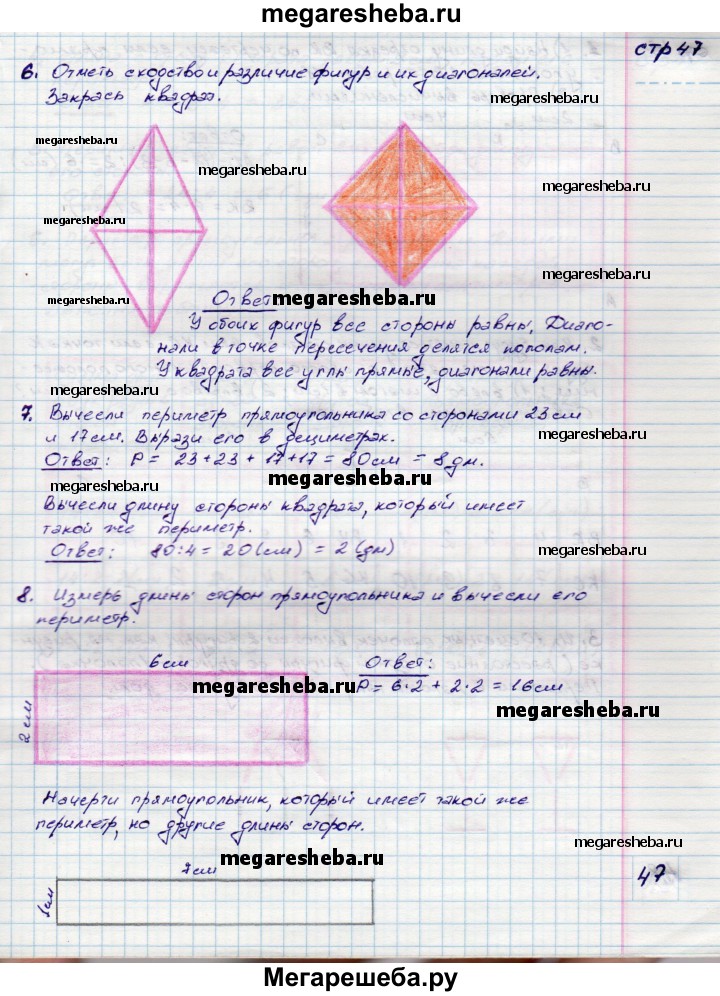 megaresheba.ru
стр 47
6. Отметь сходство и различие фигур и их диагоналей.
Закрась квадрат.
megaresheba.ru
megaresheba.ru
megaresheba.ru
megaresheba.ru
megaresheba.ru
megaresheba.ru
megaresheba.ru
Ответ
megaresheba.ru
У обоих фигур все стороны равны, Диаго-
нали в точке пересечения делятся пополам.
У квадрата все углы прямые, диагонали равны.
megaresheba.ru
7. Вычесли периметр прямоугольника со сторонами 23 см
и 17 см. Вырази его в дециметрах.
Ответ: P = 23+23+17+17 = 80 см = 8 дм.
megaresheba.ru
Вычесли длину стороны квадрата, который имеет
такой же периметр.
Ответ: 80:4 = 20 (см) = 2 (дм)
megaresheba.ru
8. Измерь длины сторон прямоугольника и вычесли его
периметр.
6 см
Ответ:
megaresheba.ru
P = 6·2 + 2·2 = 16 см
megaresheba.ru
2 см
Начерти прямоугольник, который имеет такой же
периметр, но другие длины сторон.
megaresheba.ru
megaresheba.ru
7 см
47
1 см
Мегарешеба.ру